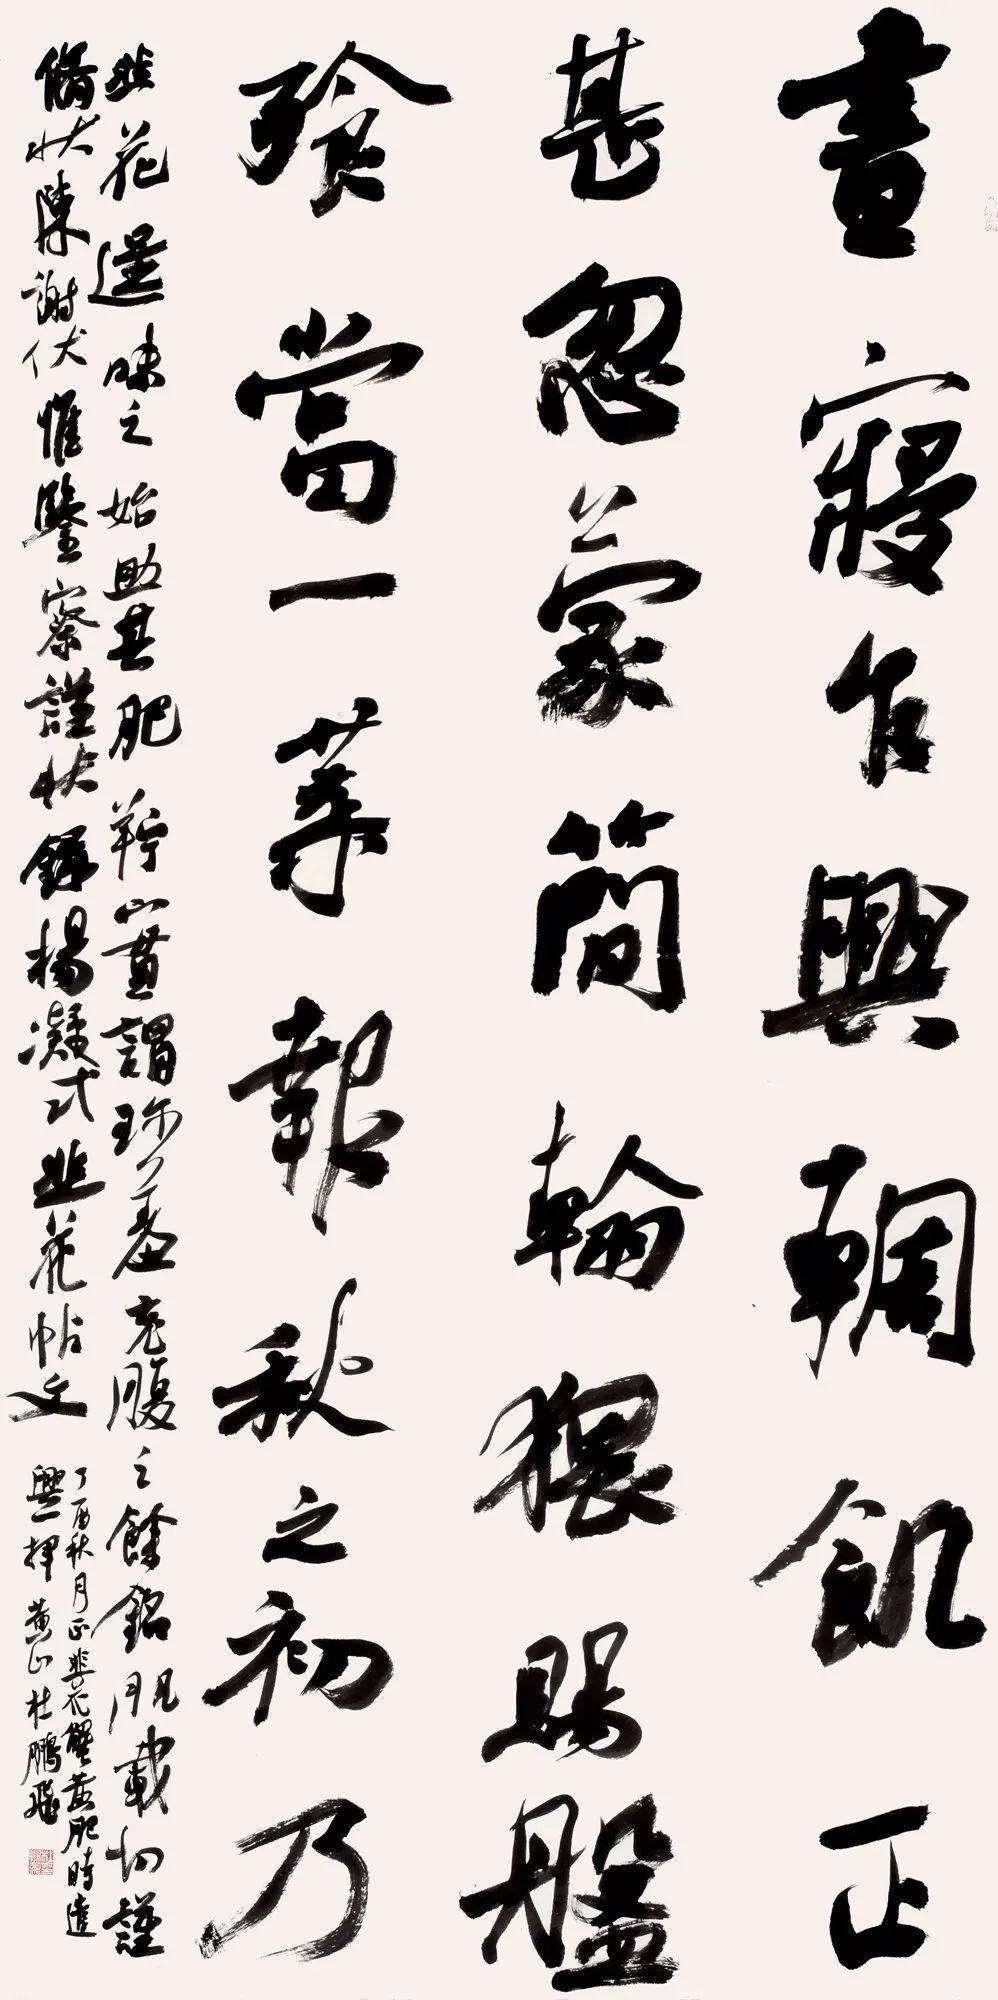 晝寢乍興輖飢正
甚忽蒙簡翰猥賜盤
飱當一葉報秋之初乃
韭花逞味之始助其肥羜實謂珍羞充腹之餘銘肌載切謹
脩狀陳謝伏惟鑒察謹狀錄楊凝式韭花帖文
丁酉秋月正韭花蟹黃肥時遣
興一揮黃山杜鵬飛